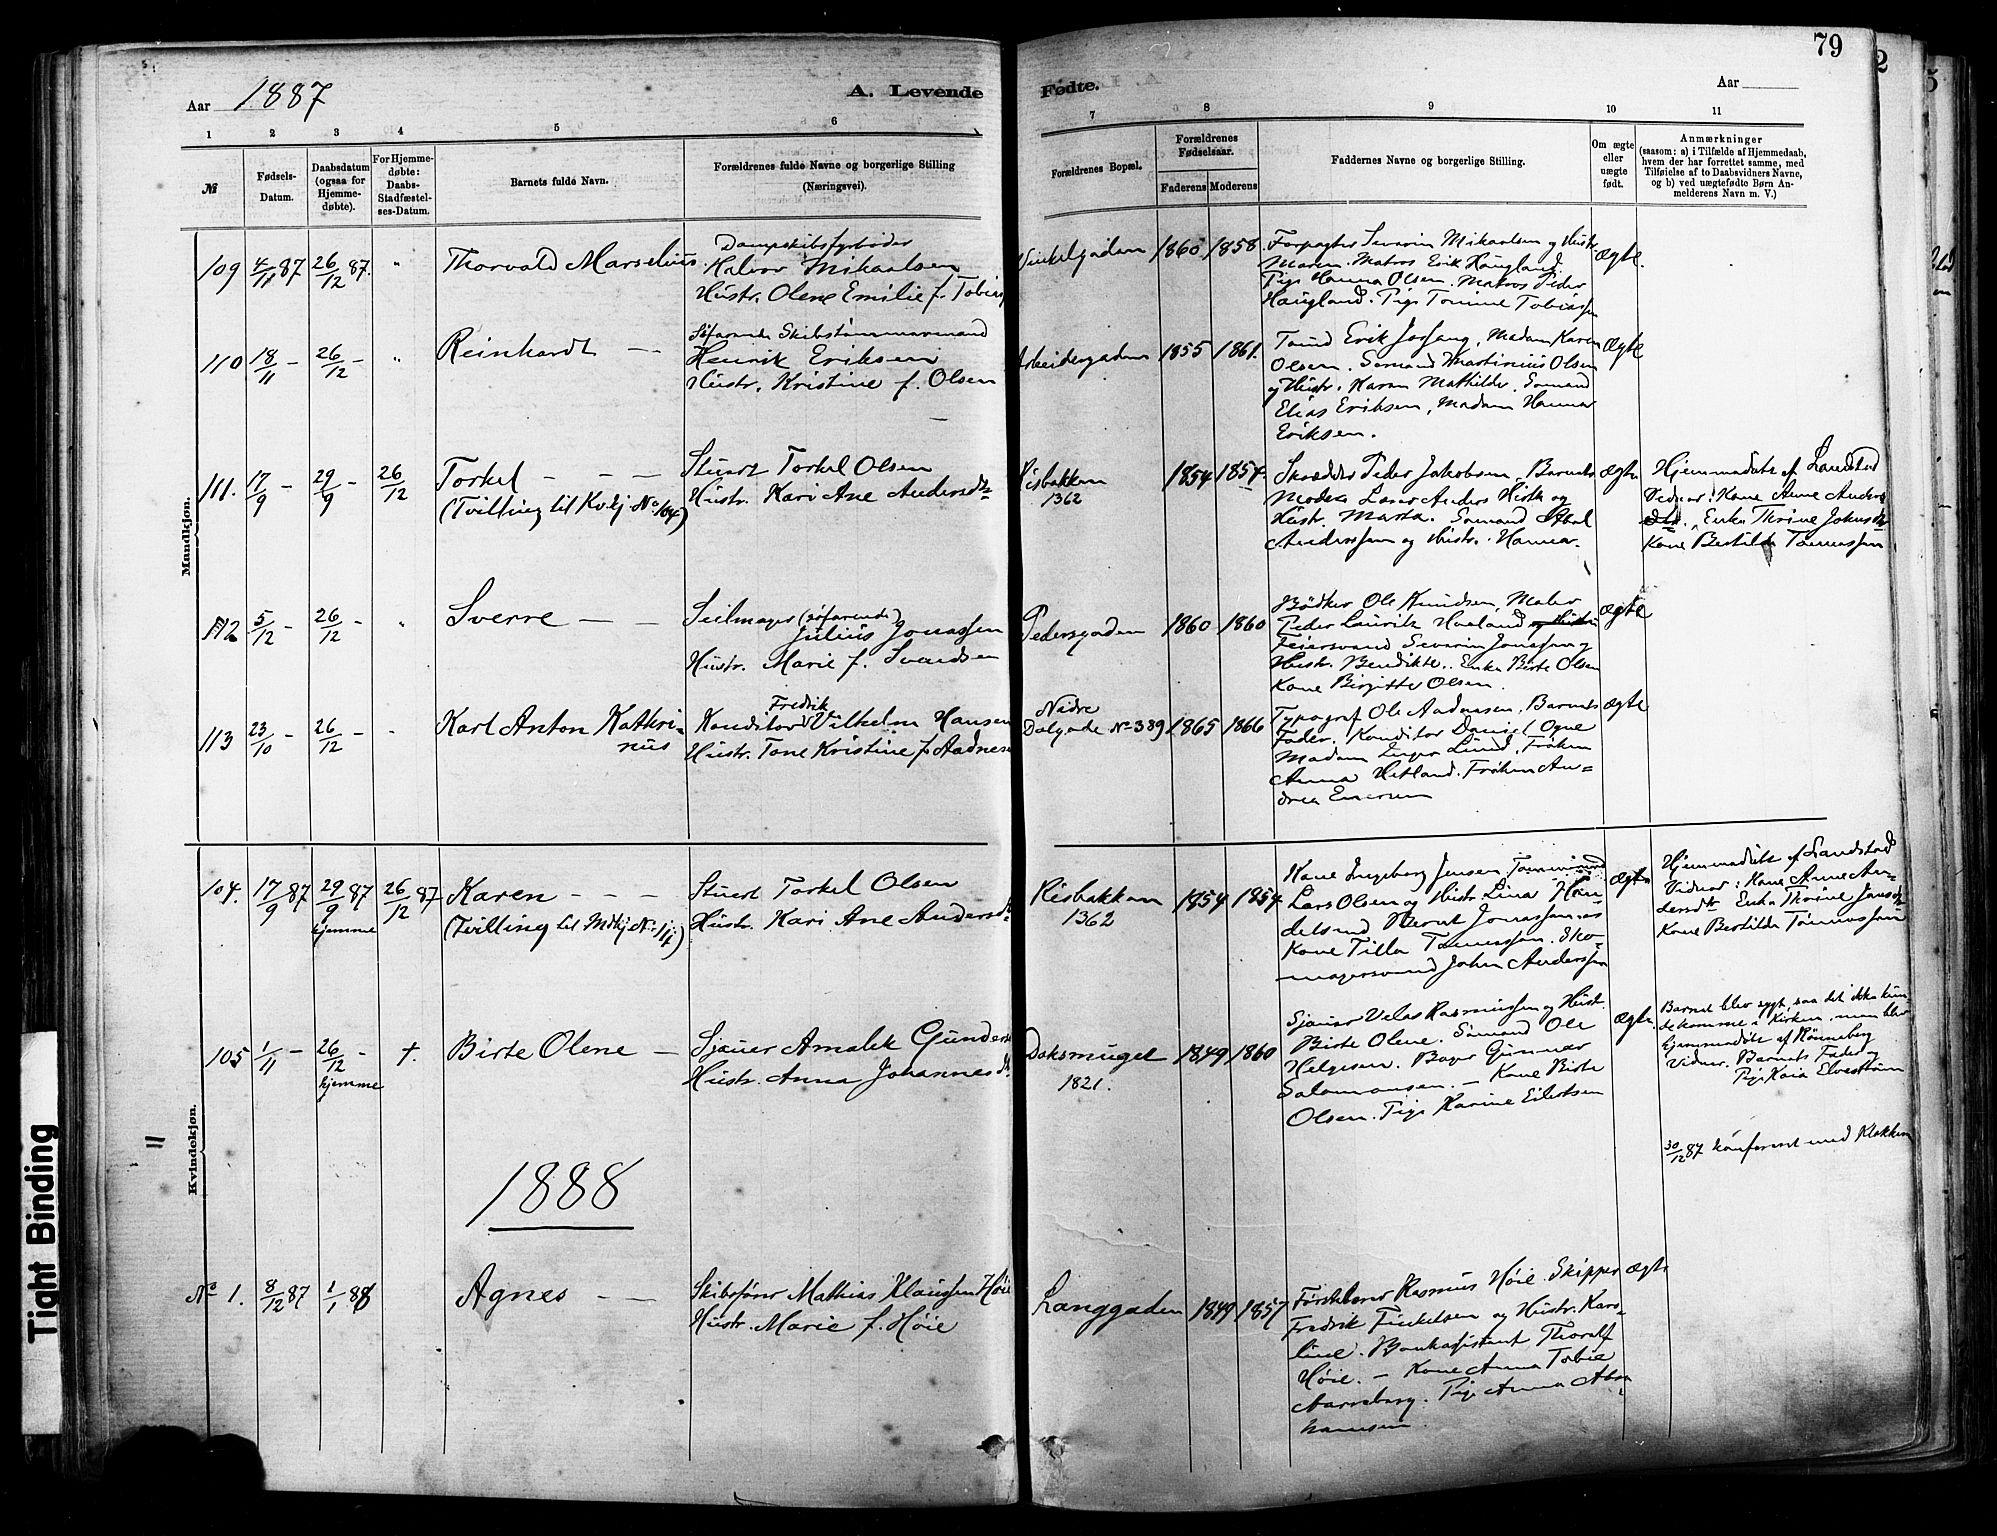 79
2
5
Aar 1887
A. Levende
Fødte.
Aar
1 2 3 4 5 6 7 8 9 10 11
№
Fødsels-
Datum.
Daabsdatum
(ogsaa for
Hjemme-
døbte).
For Hjemme-
døbte:
Daabs-
Stadfæstel-
ses-Datum.
Barnets fulde Navn.
Forældrenes fulde Navne og borgerlige Stilling
(Næringsvei).
Forældrenes Bopæl.
Forældrenes
Fødselsaar.
Faderens Moderens
Faddernes Navne og borgerlige Stilling.
Om ægte
eller
uægte
født.
Anmærkninger
(saasom: a) i Tilfælde af Hjemmedaab,
hvem der har forrettet samme, med
Tilføielse af to Daabsvidners Navne,
og b) ved uægtefødte Børn An-
melderens Navn m. V.)
Mandkjøn.
109 4/11 87 26/12 87. " Thorvald Marselius.
Dampskibsfyrbøder
Halvor Mikaelsen
Hustr. Olene Emilie f. Tobias
Vinkelgaden 1860 1858
Forpagter Severin Mikaelsen og Hustr
Maren. Matros Erik Haugland
Pige Hanna Olsen. Matros Peder
Haugland. Pige Tomine Tobiassen
ægte
110 18/11 - 26/12 - " Reinhardt -
Søfarende Skibstømmermand
Henrik Eriksen
Hustr. Kristine f. Olsen
Arbeidergaden 1855 1861.
Erik Josang, Madam Karen
Olsen. Sømand Martinius Olsen
og Hustr. Karen Mathilde. Sømand
Elias Eriksen, Madam Hanna
Eriksen.
ægte
111. 17/9 - 29/9 - 26/12 Torkel - -
(Tvilling til Kvkj. No 104)
Stuert Torkel Olsen
Hustr. Kari Ane Andersdtr
Risbakken
1362
1854 1854.
Skrædder Peder Jakobsen, Barnets
Moder. Lars Anders Hirth og
Hustr. Marta. Sømand Abel
Anderssen og Hustr. Hanna.
ægte
Hjemmedøbt af Landstad
Vidner: Kone Anne Anders
dtr. Enke Thrine Johnsdtr
Kone Bertilde Tønnessen
112 5/12 - 26/12 - " Sverre - -
Seilmager (søfarende)
Julius Jonassen
Hustr. Marie f. Svendsen
Pedersgaden 1860 1860
Bødker Ole Knudsen, Maler
Peder Laurik Haaland og Hustr
Feiersvend Severin Jonassen og
Hustr. Bendikte. Enke Birte Olsen
Kone Birgitte Olsen.
ægte
113 23/10 - 26/12 - " Karl Anton Kathri-
nus
Fredrik
Konditor Vilhelm Hansen
Hustr. Tone Kristine f. Aadnesen
Nedre
Dalgade No 389 1865 1866
Typograf Ole Aadnesen, Barnets
Fader, Konditor Daniel Ogne
Madam Inger Lund, Frøken
Anna Hetland. Frøken An-
drea Enersen
ægte
Kvindekjøn.
104. 17/9 87 29/9 87 26/12 87 Karen - - -
hjemme
(Tvilling til Mdkj No 111)
Stuert Torkel Olsen
Hustr. Kari Ane Andersdtr
Risbakken
1362
1854 1854
Kone Ingeborg Jensen. Tømmermand
Lars Olsen og Hustr. Lina Han-
delsmd Bernt Jonassen og
Kone Tilla Tønnessen. Sko-
magersvend John Anderssen
ægte
Hjemmedøbt af Landstad
Vidner: Kone Anne An-
dersdtr Enke Thrine Jonsdtr
Kone Bertilde Tønnessen
105 1/11 - 26/12 - †. Birte Olene -
hjemme
Sjauer Amalek Gunders
Hustr. Anna Johannesdtr
Doksmuget 1849 1860
1821.
Sjauer Velas Rasmussen og Hust.
Birte Olene. Sømand Ole
Helgesen. Bager Gunnar
Salomonsen. - Kone Birte
Olsen. Pige Karine Eilertsen
ægte
Barnet blev sygt, saa det ikke kun-
de komme i Kirken, men blev
hjemmedøbt af Rønneberg
Vidner. Barnets Fader og
Pige Kaia Elvestrøm
30/12 87 konfereret med Klokkeren
II
1888
No 1. 8/12 87 1/1 88 Agnes - -
Skibsfører Mathias Klaussen Høie
Hustr. Marie f. Høie
Langgaden 1849 1857
Rasmus Høie. Skipper
Fredrik Finkelsen og Hustr. Karo-
line. Bankassistent Thoralf
Høie. - Kone Anna Tobie
Aarreberg. Pige Anna Abra-
hamsen.
ægte
Tight Binding